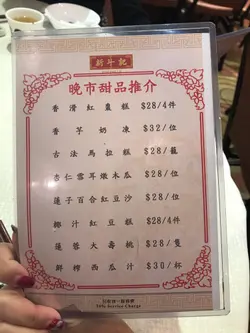 新斗記
晚市甜品推介
香滑紅棗糕 $28/4件
香芋奶凍 $32/位
古法馬拉糕 $28/籠
杏仁雪耳燉木瓜 $28/位
蓮子百合紅豆沙 $28/位
椰汁紅豆糕 $28/4件
蓮蓉大壽桃 $28/隻
鮮榨西瓜汁 $30/杯
另收加一服務費
10% Service Charge